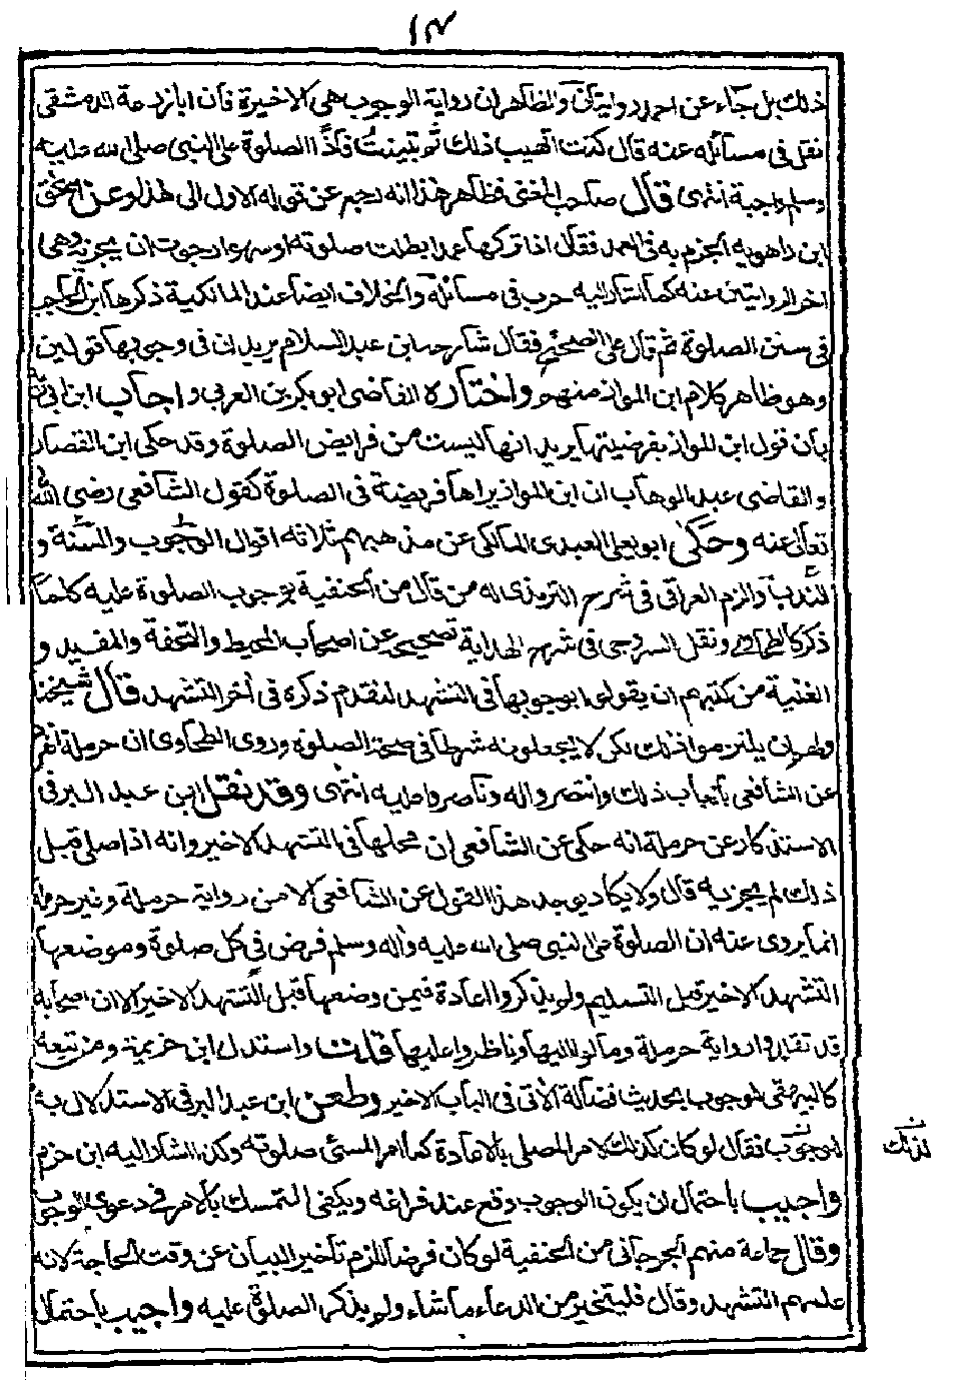 ١٣
ذلك بل جاء عن احمد روايتان والظاهر ان رواية الوجوب هي الاخيرة فان ابا زرعة الدمشقى
نقل فى مسائله عنه قال كنت اتهيب ذلك ثم تبينت فاذا الصلوة على النبى صلى الله عليه
وسلم واجبة انتهى قال صاحب المغنى فظاهر هذا انه رجع عن قوله الاول الى هذا وعن اسحق
ابن راهويه الجزم به فى العمد فقال اذا تركها عمدا بطلت صلوته او سهوا رجوت ان يجزيه وهى
اخر الروايتين عنه كما اشار اليه حرب فى مسائله والخلاف ايضا عند المالكية ذكرها ابن الحاجب
فى سنن الصلوة ثم قال على الصحيح فقال شارحه ابن عبد السلام يريد ان فى وجوبها قولين
وهو ظاهر كلام ابن المواز منهم واختاره القاضى ابو بكر بن العربى واجاب ابن ابى زيد
بان قول ابن المواز بفرضيتها يريد انها ليست من فرايض الصلوة وقد حكى ابن القصار
والقاضى عبد الوهاب ان ابن المواز يراها فريضة فى الصلوة كقول الشافعى رضى الله
تعالى عنه وحكى ابو يعلى العبدى المالكى عن مذهبهم ثلاثة اقوال الوجوب والسنة و
الندب والزم العراقى فى شرح الترمذى له من قال من الحنفية بوجوب الصلوة عليه كلما
ذكر كالطحاوى ونقل السروجى فى شرح الهداية تصحيحه عن اصحاب المحيط والتحفة والمفيد و
الغنية من كتبهم ان يقولوا بوجوبها فى التشهد لتقدم ذكره فى اخر التشهد قال شيخنا
ولهم ان يلتزموا ذلك لكن لا يجعلونه شرطا فى صحة الصلوة وروى الطحاوى ان حرملة انفرد
عن الشافعى بايجاب ذلك وانتصروا له وناصروا عليه انتهى وقد نقل ابن عبد البر فى
الاستذكار عن حرملة انه حكى عن الشافعى ان محلها فى التشهد الاخير وانه اذا صلى قبل
ذلك لم يجزيه قال ولا يكاد يوجد هذا القول عن الشافعى الا من رواية حرملة وغير حرملة
انما يروى عنه ان الصلوة على النبى صلى الله عليه واله وسلم فرض فى كل صلوة وموضعها
التشهد الاخير قبل التسليم ولم يذكروا اعادة فيمن وضعها قبل التشهد الاخير الا ان اصحابه
قد تقلدوا رواية حرملة ومالوا اليها وناظروا عليها قلت واستدل ابن خزيمة ومن تبعه
كالبيهقى لوجوب بحديث فضالة الاتى فى الباب الاخير وطعن ابن عبد البر فى الاستدلال به
لوجوب فقال لو كان كذلك لامر المصلى بالاعادة كما امر المسئ صلوته وكذا اشار اليه ابن حزم
واجيب باحتمال ان يكون الوجوب وقع عند فراغه ويكفى التمسك بالامر فى دعوى الوجوب
وقال جماعة منهم الجرجانى من الحنفية لو كان فرضا للزم تاخير البيان عن وقت الحاجة لانه
علمهم التشهد وقال فليتخير من الدعاء ما شاء ولم يذكر الصلوة عليه واجيب باحتمال